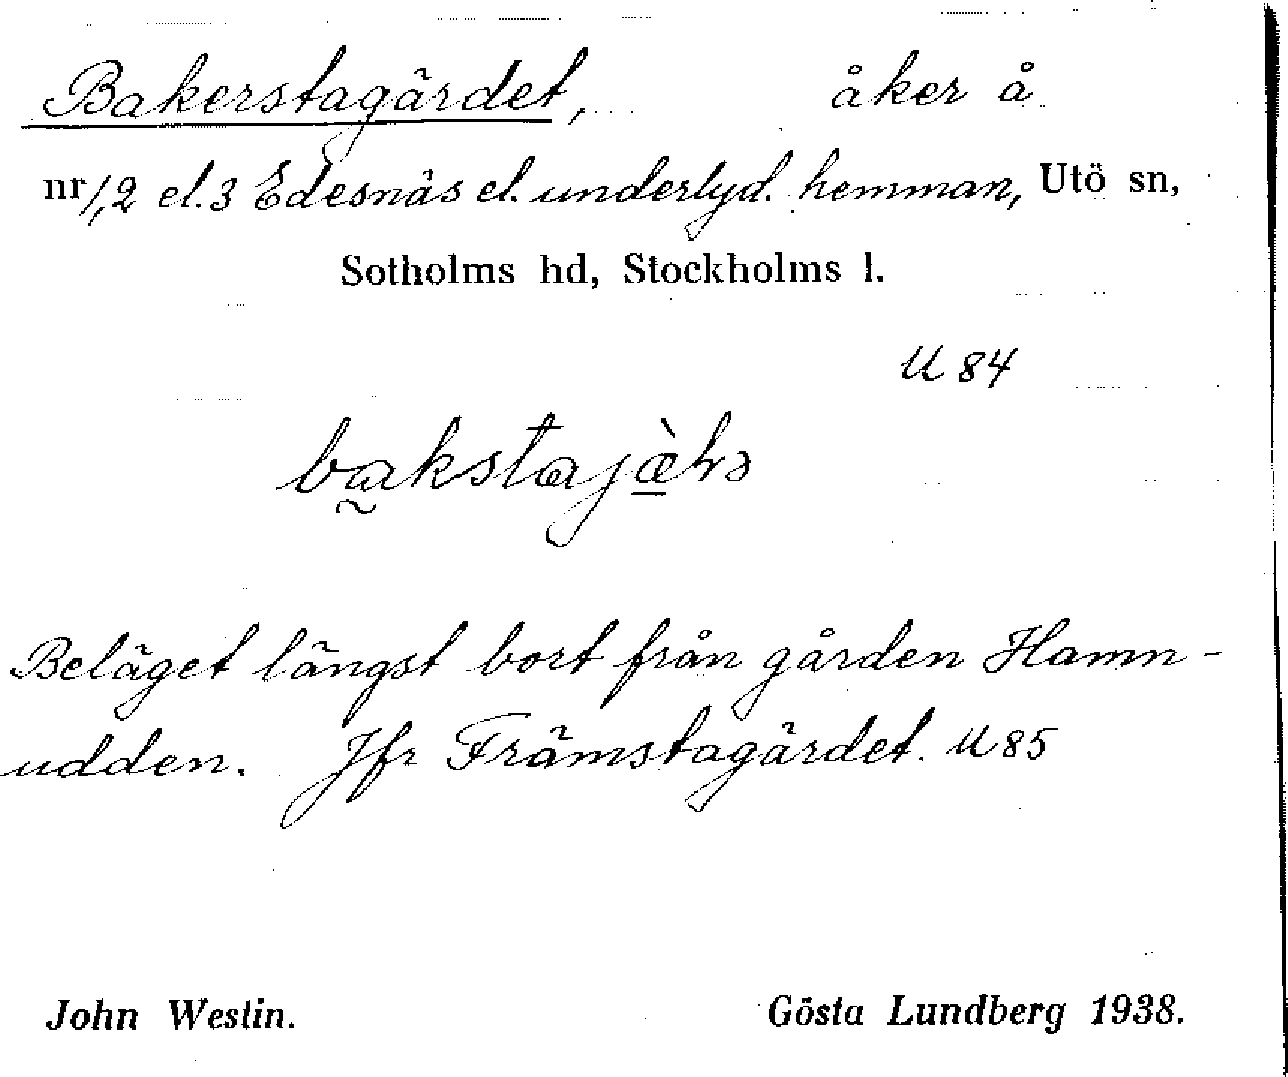 Bakerstagärdet, åker å
nr 1,2 el. 3 Edesnäs el. underlyd. hemman, Utö sn,
Sotholms hd, Stockholms l.
U 84
Beläget längst bort från gården Hamn-
udden. Jfr Främstagärdet. U 85
John Westin. Gösta Lundberg 1938.